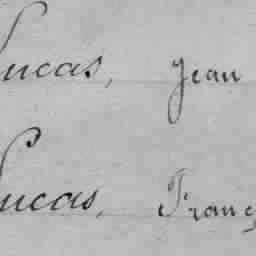 Lucas, Jean
Lucas, Franç